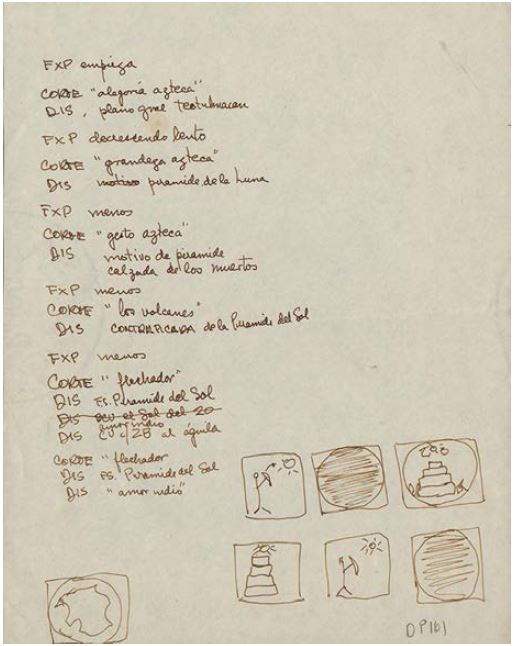 FXP empieza
CORTE "alegoria azteca"
DIS, plano gral teotihuacan
FXP decresendo lento
CORTE "grandeza azteca"
DIS motivo piramide de la Luna
FXP menos
CORTE "gesto azteca"
DIS motivo de piramide
calzada de los muertos
FXP menos
CORTE "los volcanes"
DIS CONTRAPICADA de la Piramide del Sol
FXP menos
CORTE "flechador"
DIS FS. Piramide del Sol
DIS el Sol del 20
amor indio
DIS CU 2B al águila
CORTE "flechador
DIS FS. Piramide del Sol
DIS "amor indio"
DP181